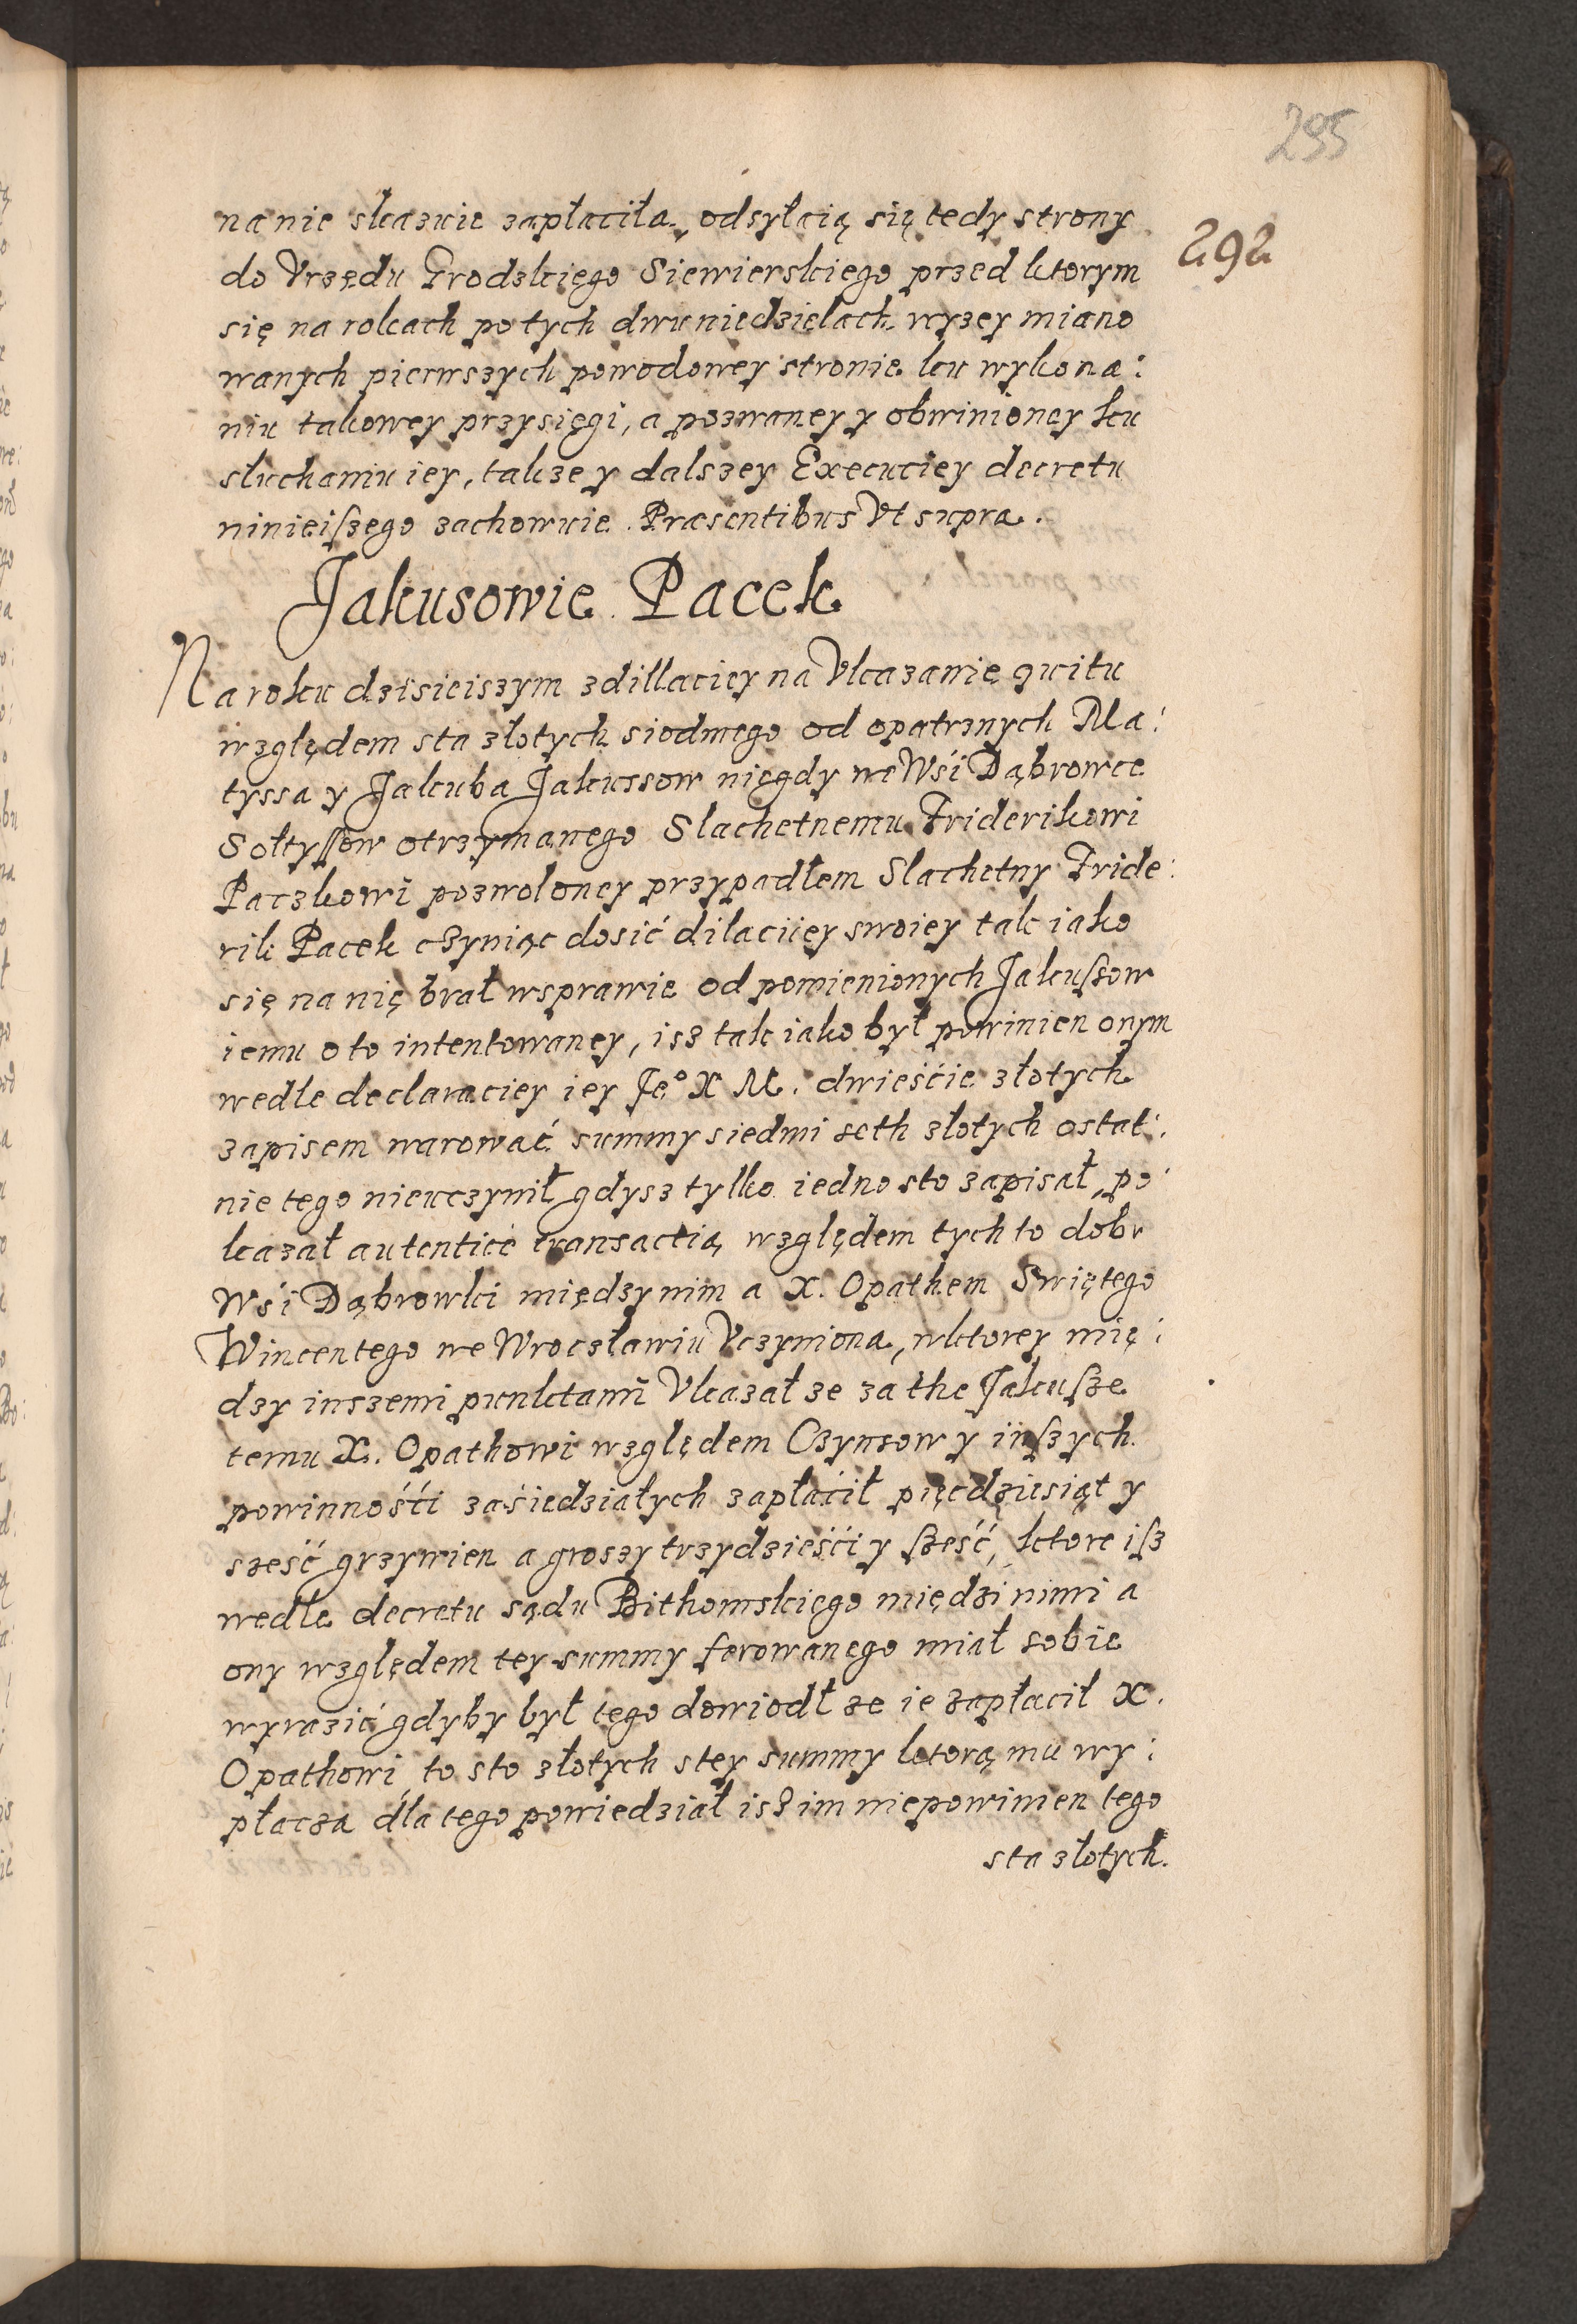 295
292
na nie skazuie zapłaciła, odsyłaią się tedy strony
do Vrzędu Grodzkięgo Siewierskiego przed ktorym
się na rokach po tych dwu niedzielach wyzey miano
wanych pierwszych powodowey stronie ku wykona:
niu takowey przysięgi, a pozwaney y obwinioney ku
słuchaniu iey, takze y dalszey Execuciey decretu
ninieiſzego zachowuie. Præsentibus Vt supra.
Jakusowie Pacek
Na roku dzisieiszym z dillaciey na Vkazanie quitu
względem sta złotych siodmego od opatrznych Ma:
tyssa y Jakuba Jakussow niegdy we Wśi Dąbrowce
Sołtyſſow otrzymanego Slachetnemu Friderikowi
Paczkowi pozwoloney przypadłem Slachetny Fride:
rik Pacek czyniąc dosić dilaciiey swoiey tak iako
się na nię brał w sprawie od pomienionych Jakuſsow
iemu o to intentowaney, isz tak iako był powinien onym
wedle declaraciey iey Je° X M. dwieśćie złotych
zapisem warować summy siedmi seth złotych ostat:
nie tego nieuczynił gdysz tylko iedno sto zapisał, po:
kazał autenticè transactią względem tych to dobr
Wśi Dąbrowki między nim a X. Opathem Swiętego
Wincentego we Wroczławiu Vczyniona, w ktorey mię:
dzy inszemi punktami Vkazał ze za the Jakuſze
temu X. Opathowi względem Czynsow y inſzych
powinnośći zaśiedziałych zapłaćił pięcdziesiąt y
sześć grzywien a groszy trzydzieśći y ſześć, ktore iſz
wedle decretu sądu Bithomskięgo międzi nimi a
ony względem tey summy ferowanego miał sobie
wyrazić gdyby był tego dowiodł ze ie zapłacił X.
Opathowi to sto złotych s tey summy ktorą mu wy:
płacza dla tego powiedział isz im niepowinien tego
sta złotych.